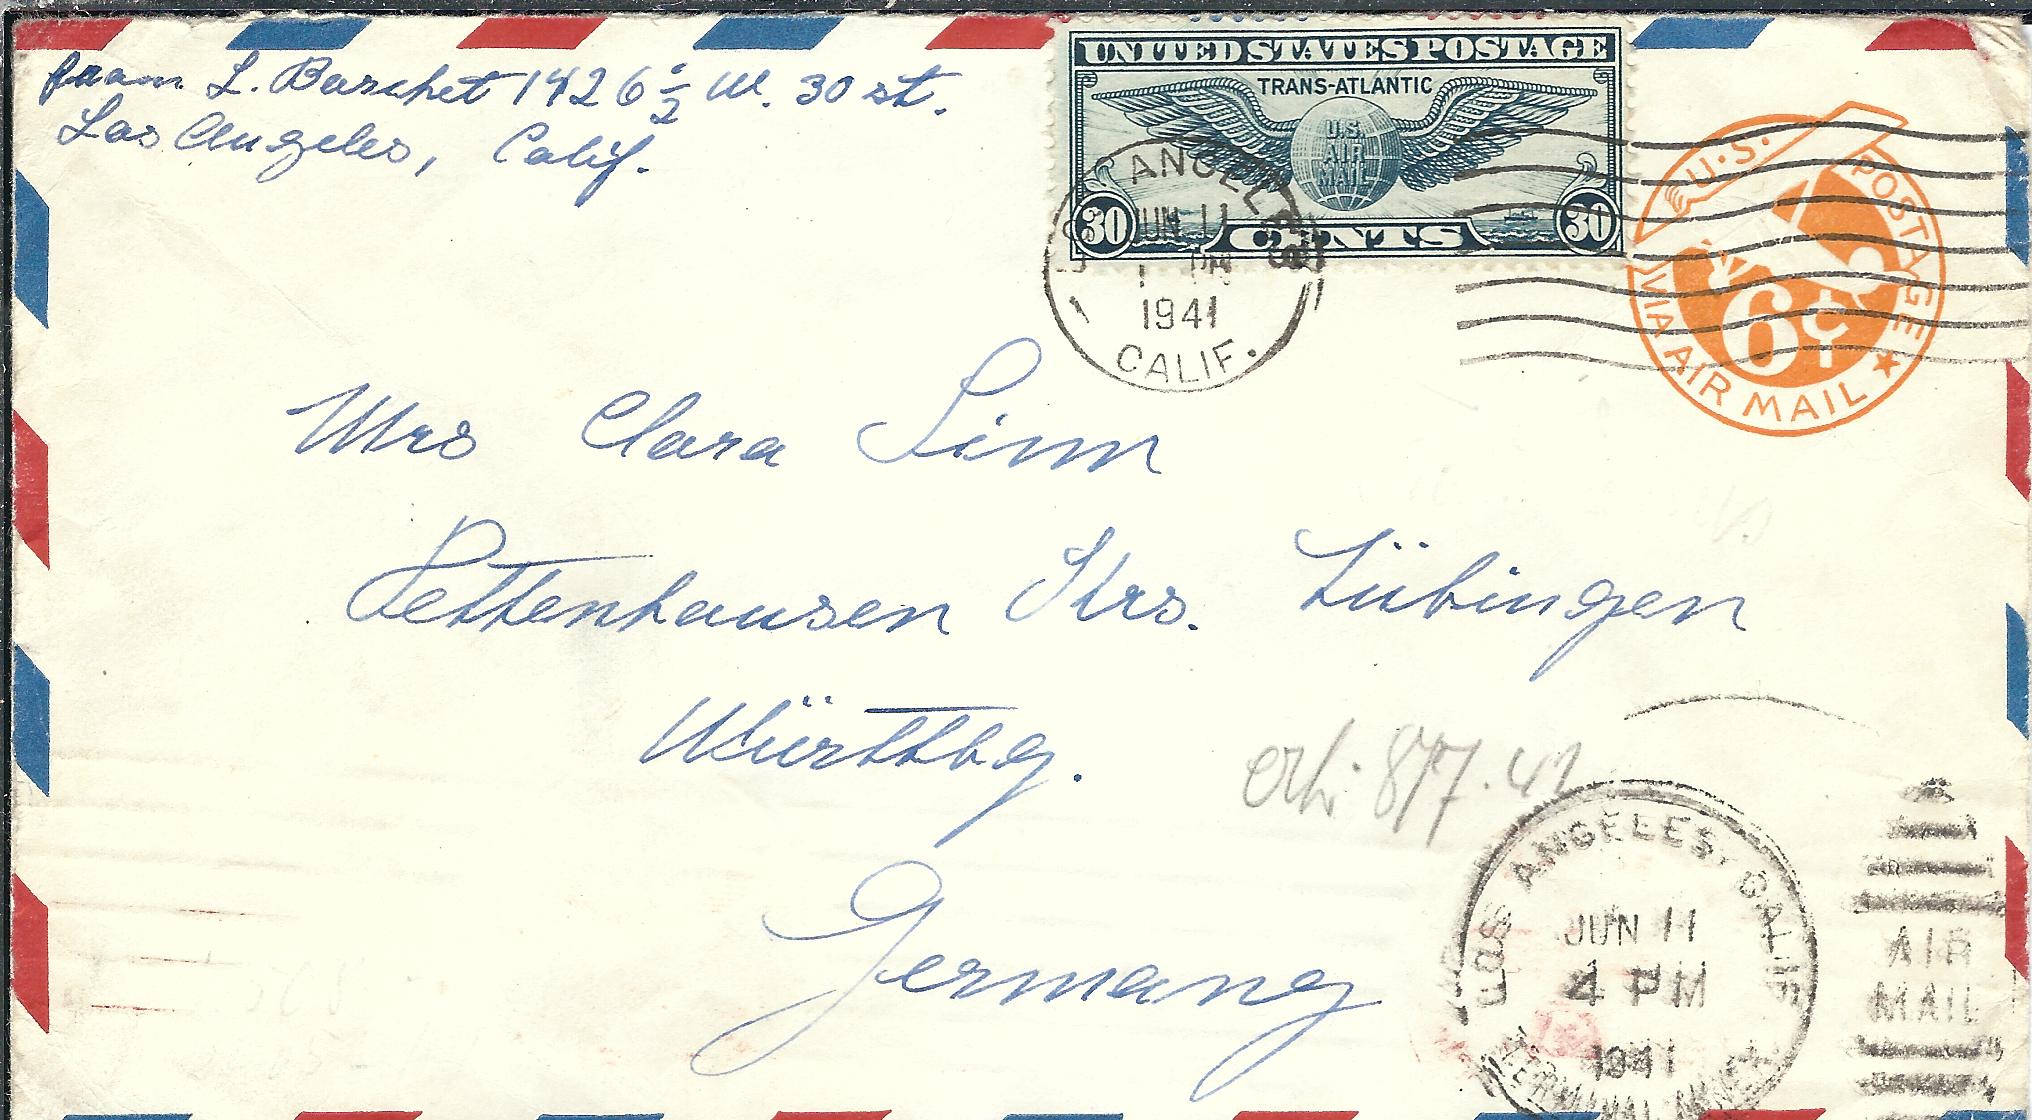 from L. Barchet 1426 1/2 W. 30 st.
Los Angeles, Calif.
UNITED STATES POSTAGE
TRANS-ATLANTIC
U.S.
AIR
MAIL
30 CENTS 30
ANGELES
JUN 11
PM
1941
CALIF.
U.S. POSTAGE
6¢
VIA AIR MAIL
Mrs Clara Linn
Pettenhausen Krs. Tübingen
Württbg.
Germany
erh. 8/7.41
LOS ANGELES, CALIF
JUN 11
4 PM
1941
TERMINAL ANNEX
AIR
MAIL